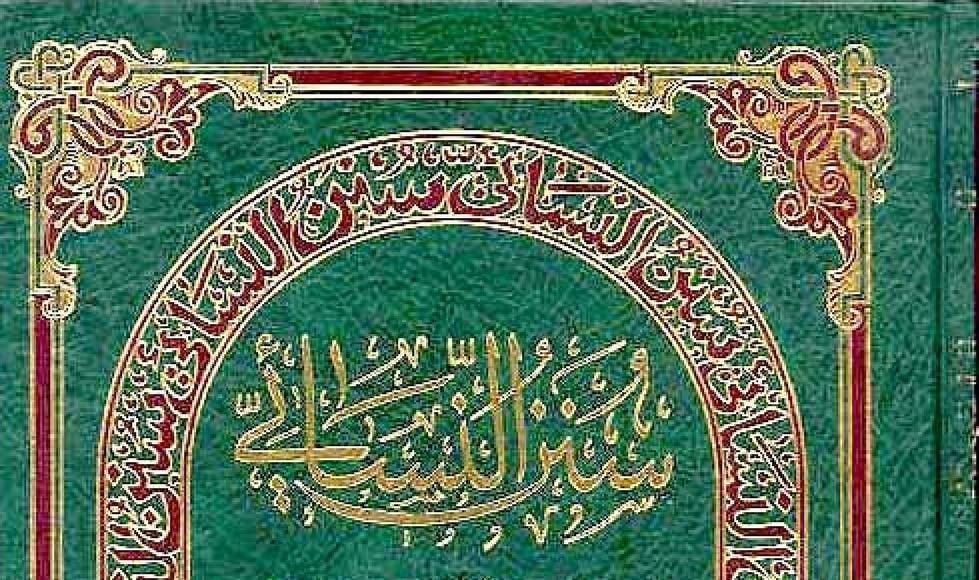 سنن النسائي سنن النسائي سنن النسائي سنن النسائي
سُنَنُ النَّسَائِيِّ